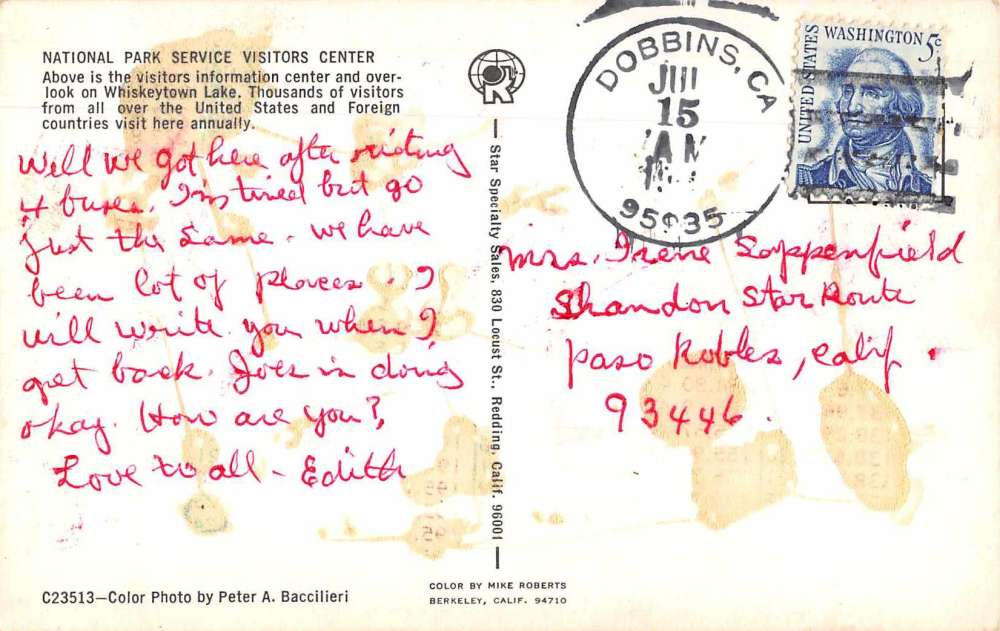 NATIONAL PARK SERVICE VISITORS CENTER
Above is the visitors information center and over-
look on Whiskeytown Lake. Thousands of visitors
from all over the United States and Foreign
countries visit here annually.
Well we got here after riding
4 buses. I'm tired but go
just the same. we have
been lot of places. I
will write you when I
get back. Joes is doing
okay. How are you?
Love to all - Edith
C23513—Color Photo by Peter A. Baccilieri
Star Specialty Sales, 830 Locust St., Redding, Calif. 96001
COLOR BY MIKE ROBERTS
BERKELEY, CALIF. 94710
DOBBINS, CA
15
AM
95935
UNITED STATES
WASHINGTON 5c
Mrs. Irene Sappenfield
Shandon Star Route
Paso Robles, Calif.
93446.